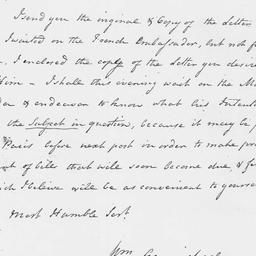 I send you the original & Copy of the Letter
I waited on the French Ambassador, but not f
I enclosed the copy of the Letter you desire
him – I shall this evening wait on the Ma
& endeavor to know what his Intent
the Subject in question, because it may be p
Paris before next post in order to make pro
of bils that will soon become due, & f
ich I beleive will be as convenient to yourse
Most Humble Sert
Wm